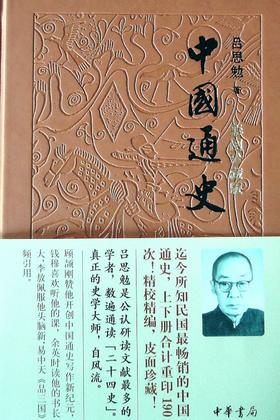 中國通史
吕思勉 著
迄今所知民国最畅销的中国
通史，上下册合计重印190
次！精校精编，皮面珍藏！
吕思勉是公认研读文献最多的
学者，数遍通读「二十四史」，
真正的史学大师，自风流。
顾颉刚赞他开创中国通史写作新纪元，
钱穆喜欢听他的课，余英时读他的书长
大，李敖佩服他头脑新，易中天《品三国》
频引用。
中華書局